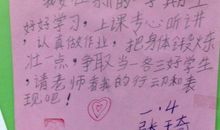 我要在新的一学期里
好好学习，上课专心听讲
，认真做作业，把身体锻炼
壮一点，争取当一名三好学生
，请老师看我的行动和表
现吧！
一.4